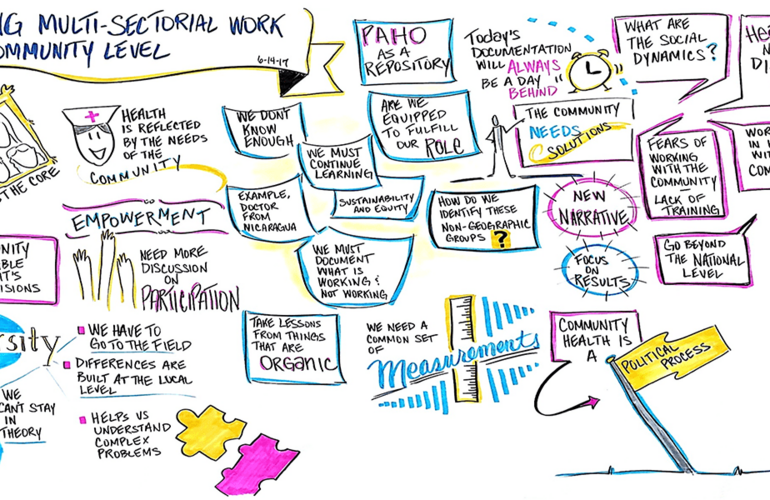 NG MULTI-SECTORIAL WORK
OMMUNITY LEVEL
6-14-17
PAHO
AS A
REPOSITORY
Today's
DOCUMENTATION
WILL ALWAYS
BE A DAY "
BEHIND
WHAT ARE
THE SOCIAL
DYNAMICS?
HEALTH
IS REFLECTED
BY THE NEEDS
OF THE
COMMUNITY
THE CORE
WE DON'T
KNOW
ENOUGH
ARE WE
EQUIPPED
TO FULFILL
OUR ROLE
WE MUST
CONTINUE
LEARNING
THE COMMUNITY
NEEDS
SOLUTIONS
FEARS OF
WORKING
WITH THE
COMMUNITY
LACK OF
TRAINING
EMPOWERMENT
EXAMPLE,
DOCTOR
FROM
NICARAGUA
SUSTAINABILITY
AND EQUITY
HOW DO WE
IDENTIFY THESE
NON-GEOGRAPHIC
GROUPS ?
NEW
NARRATIVE
NEED MORE
DISCUSSION
ON
PARTICIPATION
WE MUST
DOCUMENT
WHAT IS
WORKING &
NOT WORKING
FOCUS
ON
RESULTS
GO BEYOND
THE NATIONAL
LEVEL
WE HAVE TO
GO TO THE FIELD
DIFFERENCES ARE
BUILT AT THE LOCAL
LEVEL
HELPS US
UNDERSTAND
COMPLEX
PROBLEMS
WE
CAN'T STAY
IN
THEORY
TAKE LESSONS
FROM THINGS
THAT ARE
ORGANIC
WE NEED A
COMMON SET
OF
Measurements
COMMUNITY
HEALTH IS
A
POLITICAL
PROCESS